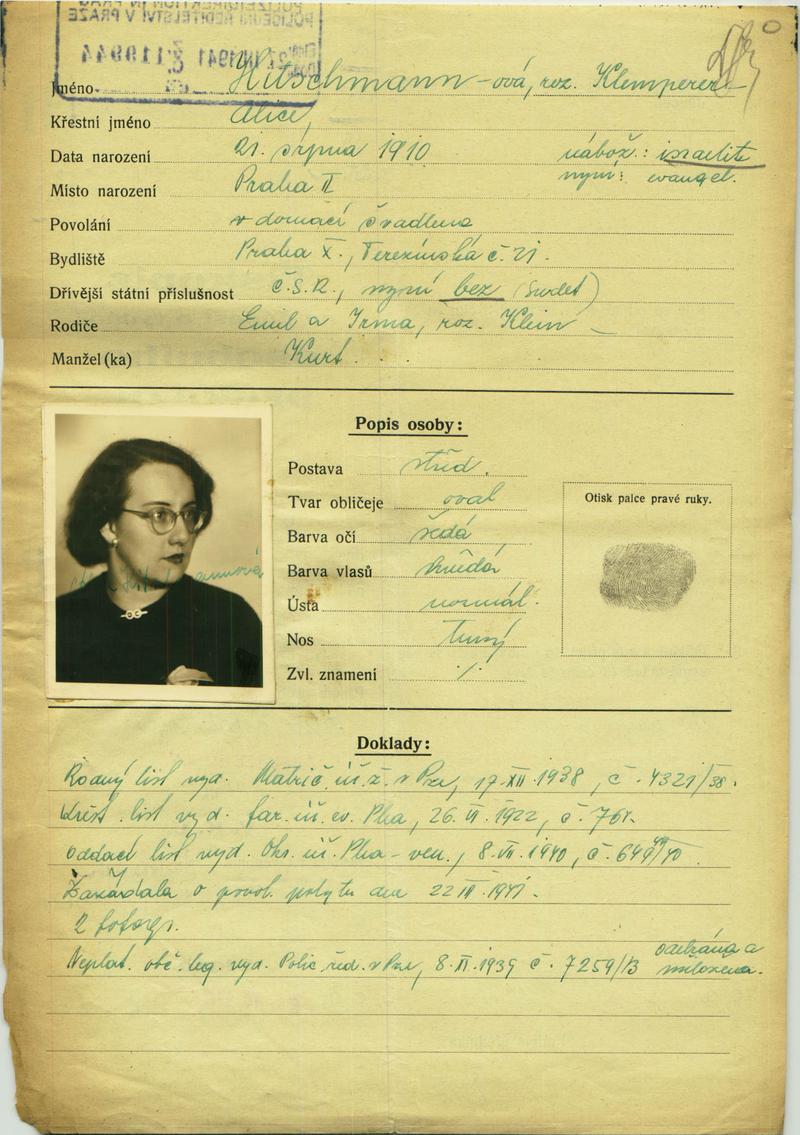 POLIZEIDIREKTION IN PRAG
POLICEJNÍ ŘEDITELSTVÍ V PRAZE
Jméno Hitschmann-ová, roz. Klemperer
Křestní jméno Alice,
Data narození 21. srpna 1910 nábož.: israelite
Místo narození Praha II nyní: evangel.
Povolání v domácí švadlena
Bydliště Praha X., Terezínská č. 21.
Dřívější státní příslušnost Č.S.R., nyní bez (Sudet)
Rodiče Emil a Irma, roz. Klein
Manžel(ka) Kurt
Popis osoby:
Postava střed.
Tvar obličeje oval
Barva očí šedá
Barva vlasů hnědá
Ústa normál.
Nos
Zvl. znamení /.
Otisk palce pravé ruky.
Doklady:
Rodný list vyd. Matrič. úř. ž. v Pze, 17.XII.1938, č. 4321/38.
Křest. list vyd. far. úř. ev. Pha, 26.VI.1922, č.
Oddací list vyd. Okr. úř. Pha-ven., 8.VII.1940, č.
Zažádala o povol. pobytu dne 22 III.1941.
2 fotogr.
Neplat. obč. leg. vyd. Polic. řed. v Pze, 8.XI.1939 č. 7259/13 odebrána a
přiložena.